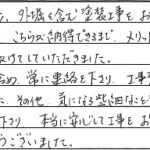 、外壁を含む塗装工事をお
こちらが納得できるまで、メリッ
受けてしていただきました。
め、常に連絡を下さり、工事
、その他、気になる些細なことも
下さり 本当に安心して工事をお
うございました。